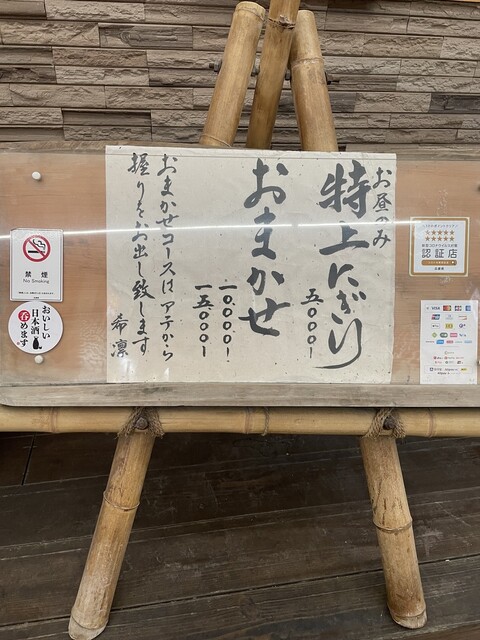 お昼のみ
特上にぎり
五〇〇〇ー
おまかせ
一〇、〇〇〇ー
一五〇〇〇ー
おまかせコースはアテから
握りをお出し致します
希凛
禁煙
No Smoking
おいしい
日本酒
呑めます
認証店
VISA